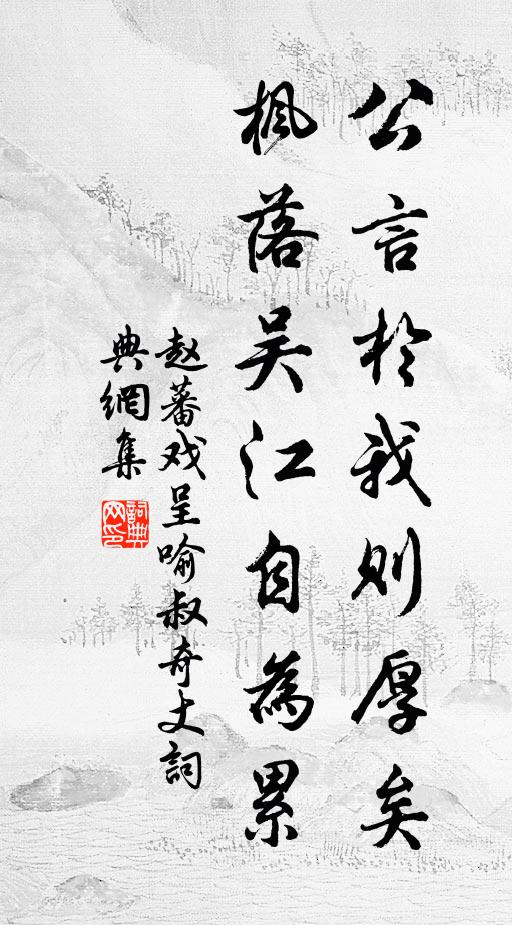 公言於我则厚矣
枫落吴江自為累
赵蕃戏呈喻叔奇丈詞
典網集
詞典
网印